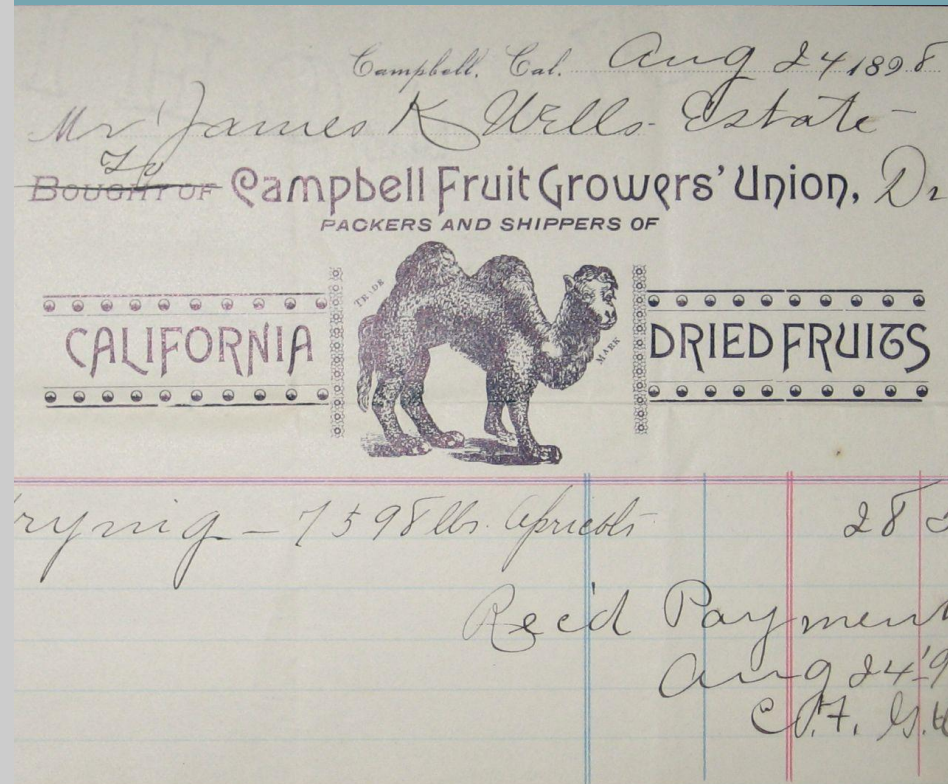 Campbell, Cal. Aug 24 1898
Mr James K Wells - Estate
To
BOUGHT OF Campbell Fruit Growers' Union, Dr
PACKERS AND SHIPPERS OF
TRADE MARK
CALIFORNIA DRIED FRUITS
rynig - 7598 lbs. Apricots 28
Rec'd Payment
Aug 24 '9
C.F. G.U